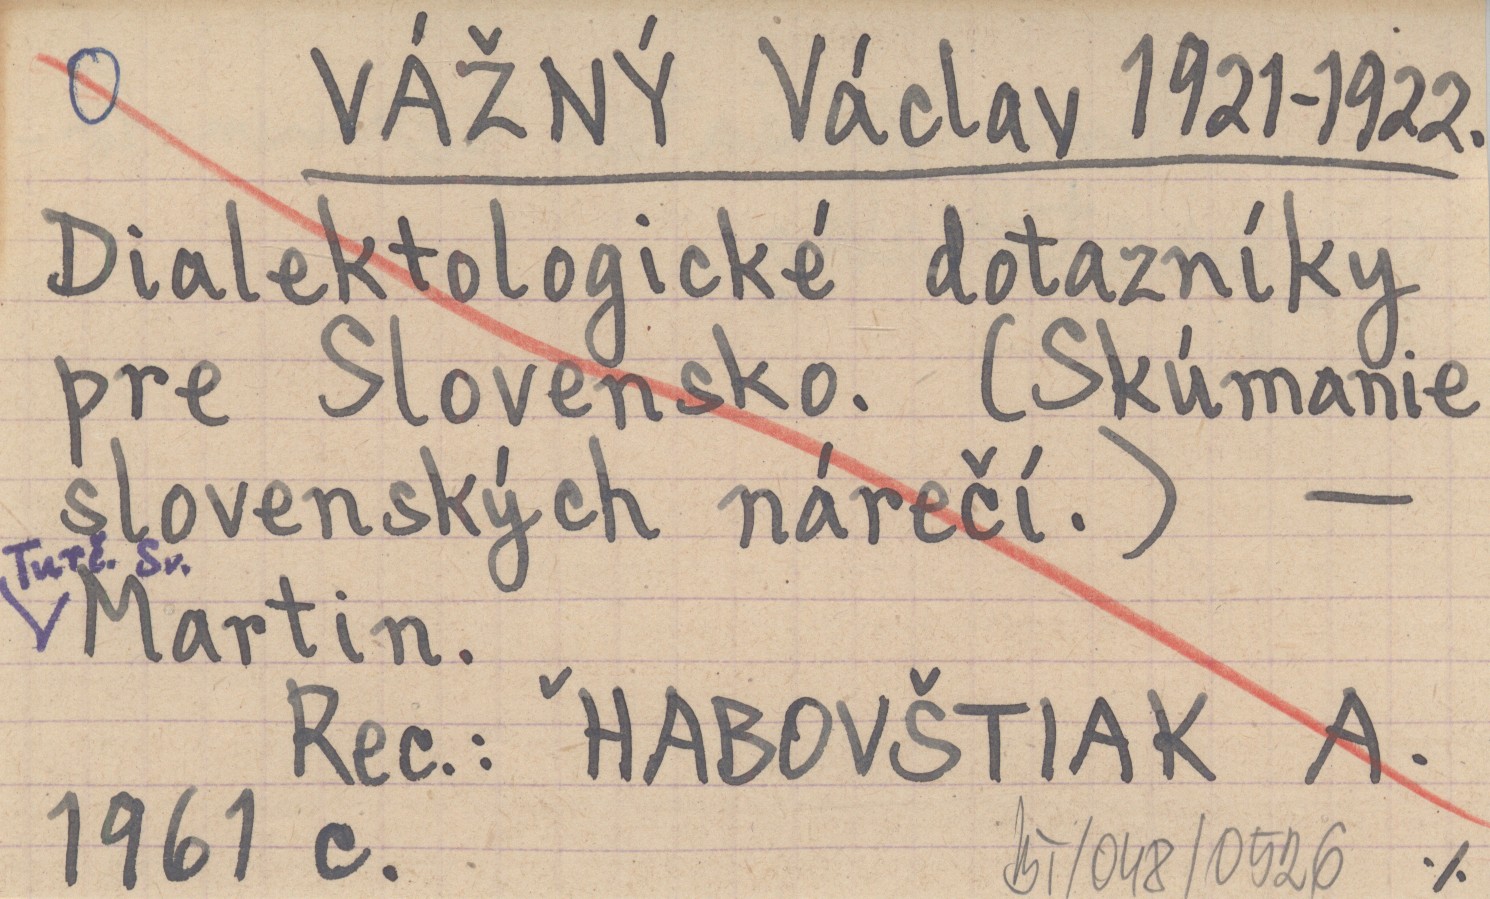 O VÁŽNÝ Václav 1921-1922.
Dialektologické dotazníky
pre Slovensko. (Skúmanie
slovenských nárečí.) —
Turč. Sv.
Martin.
Rec.: ˇHABOVŠTIAK A.
1961 c.
/048/0526 ./.